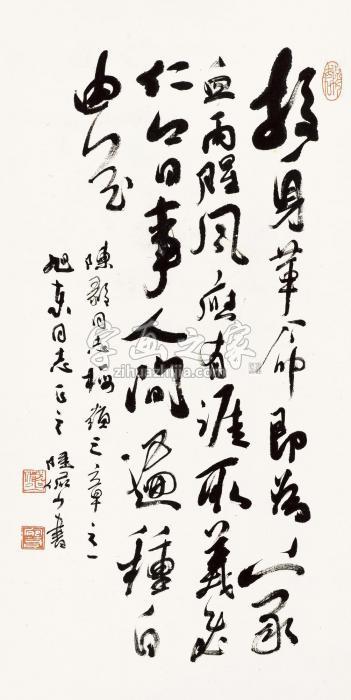 投身革命即為家
血雨腥風應有涯取義成
仁今日事人間遍種自
由花
陳毅同志梅嶺三章之一
旭東同志正之 陸儼少書
字画之家
zihuazhijia.com